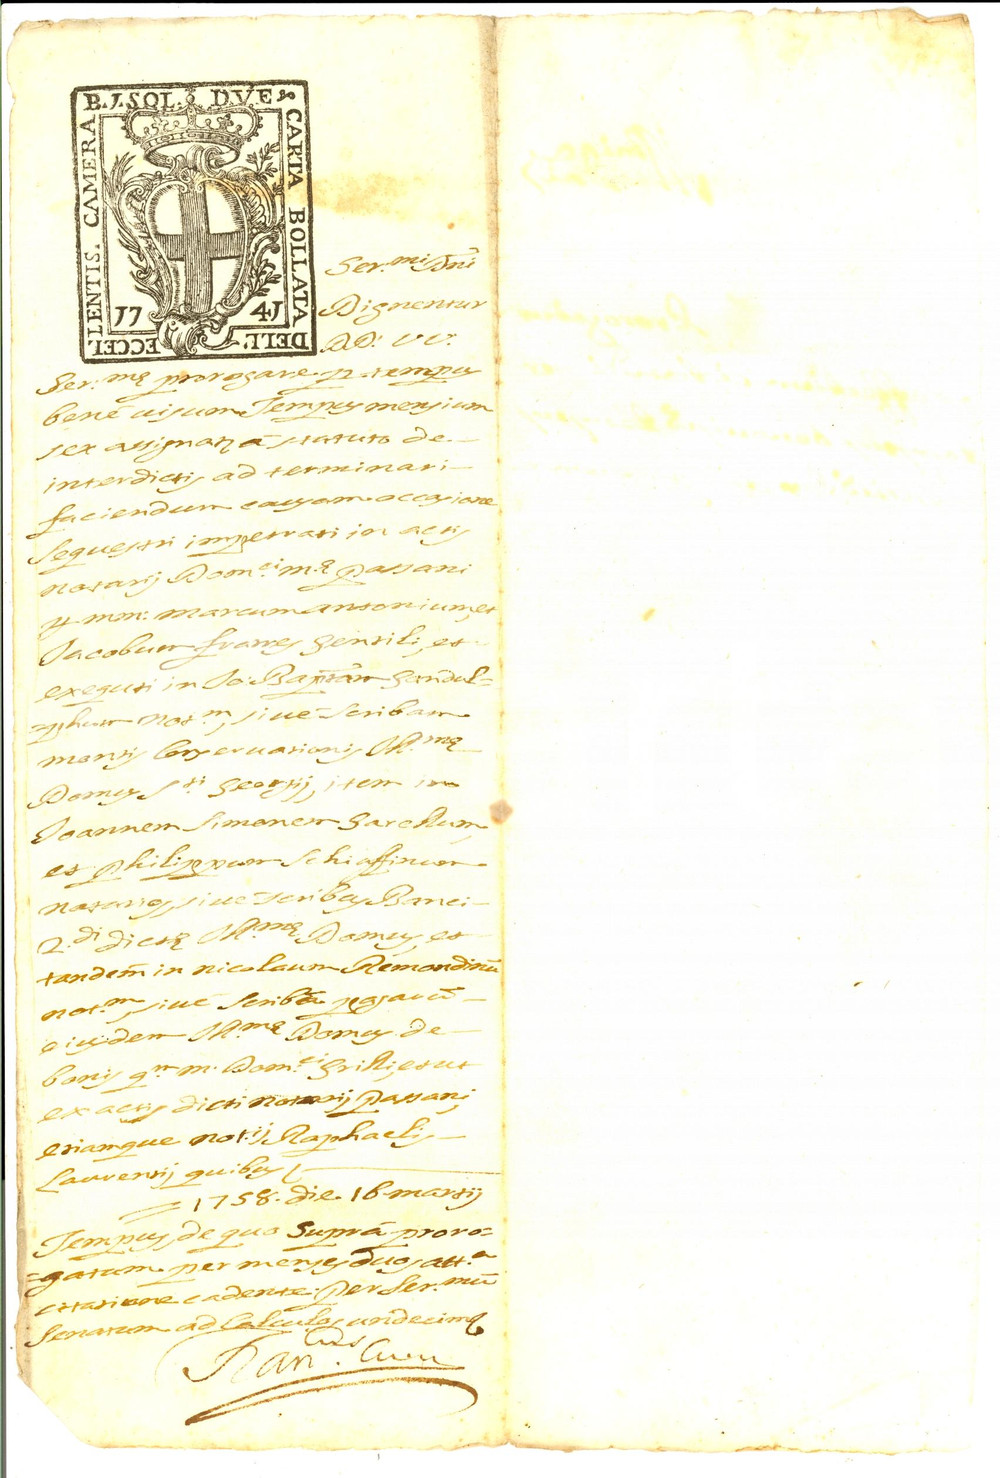 B. 7. SOL. DVE
CARTA BOLLATA
DELL' ECCEL
LENTIS. CAMERA
17 41
Ser.mi Dni
Dignentur
DD. VV.
Ser.mę prorogare p tempus
bene uisum Tempus mensium
sex assignat a statuto de
interdictis ad terminari
faciendum causam occasione
sequestri impetrati in actis
notarij Dom.ci mę Passani
p mm: Marcum Antonium, et
Jacobum fratres Gentili, et
exequti in Jo: Baptam Gandul=
=phum not.m, siue scribam
montis Conseruationis Ill.mę
Domus S.ti Georgij, item in
Joannem Simonem Garellum,
et Philippum Schiaffinum
notarios, siue scribas Banci
2.di dictę Ill.mę Domus, et
tandem in Nicolaum Remondinū
not.m, siue scribā
eiusdem Ill.mę Domus de
bonis qm m. Dom.ci Grilli, et ut
ex actis dicti notarij Passani,
etiamque not.ij Raphaelis
Laurentij quibus
1758. die 16 martij
Tempus de quo supra proro=
=gatum per menses duos att.a
citatione cadente per Ser.mū
Senatum ad Calculos undecim
Ran.